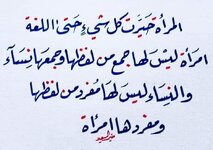 المرأة حيّرت كل شيء حتى اللغة
امرأة ليس لها جمع من لفظها وجمعها نِسَآء
والنِسَاء ليسَ لها مُفرد من لفظِها
ومفردها امرأة